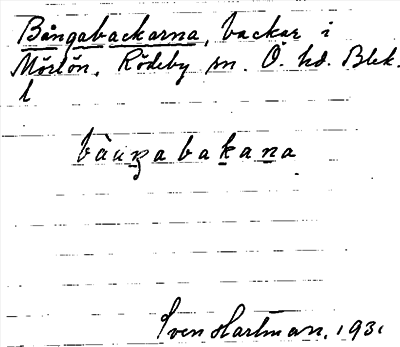 Bångabackarna, backar i
Mörtön, Rödeby sn. Ö. hd. Blek.
l
bàuŋabakana
Sven Hartman, 1931